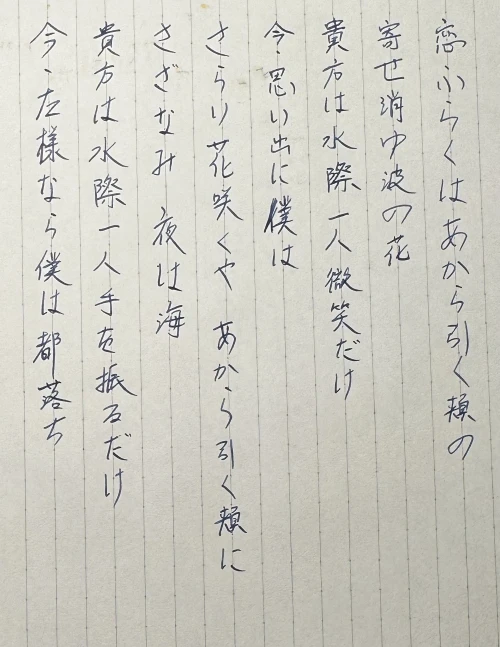 恋ふらくはあから引く頬の
寄せ消ゆ波の花
貴方は水際一人微笑だけ
今、思い出に僕は
さらり花咲くや あから引く頬に
さざなみ、夜は海
貴方は水際一人手を振るだけ
今、左様なら僕は都落ち